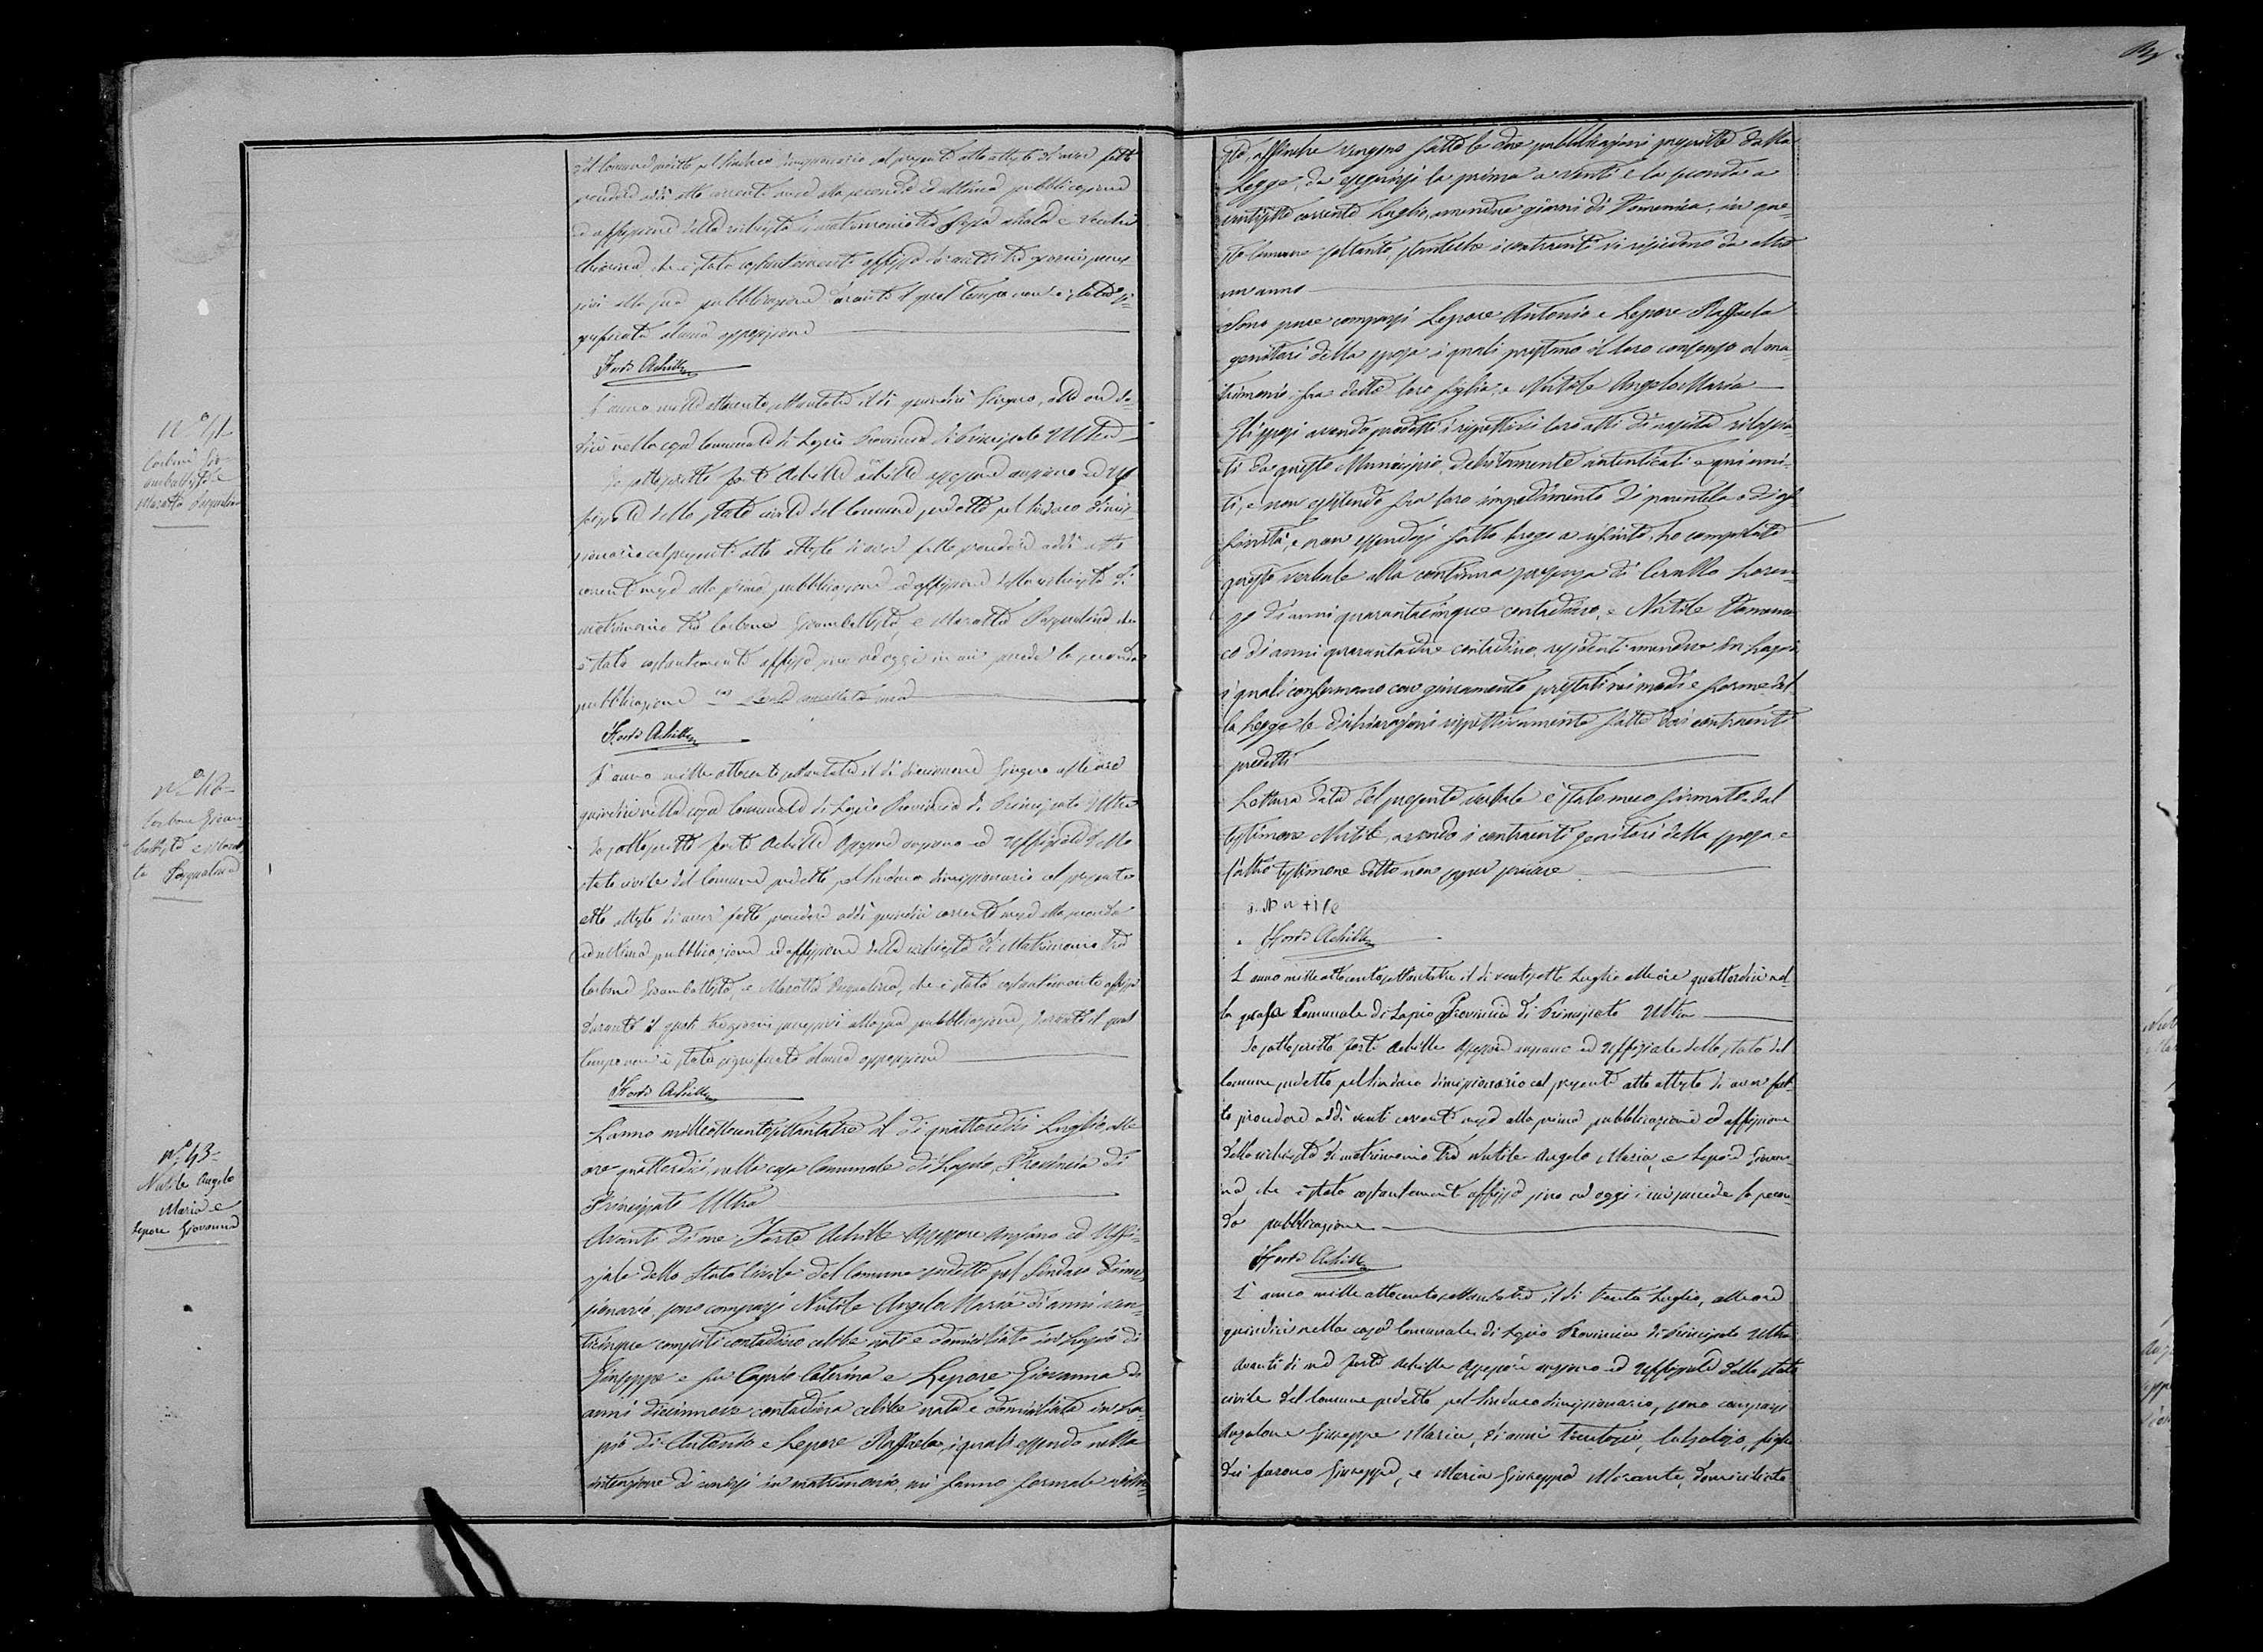 del Comune predetto pel Sindaco dimissionario col presente atto attesto di aver fatto
procedere addì otto corrente mese alla seconda ed ultima pubblicazione
ed affissione della richiesta di matrimonio tra
che è stata costantemente affissa durante tre giorni succes-
sivi alla sua pubblicazione durante il qual tempo non è stata si-
gnificata alcuna opposizione
Forte Achille
N° 41
Carbone Gio-
vambattista e
Marotta Pasqualina
L'anno mille ottocento settantatre il dì quindici Giugno, alle ore do-
dici nella casa Comunale di Lapio Provincia di Principato Ultra
Io sottoscritto Forte Achille assessore anziano ed Uf-
fiziale dello stato civile del Comune predetto pel Sindaco dimis-
sionario col presente atto attesto di aver fatto procedere addì otto
corrente mese alla prima pubblicazione ed affissione della richiesta di
matrimonio tra Carbone Giovambattista, e Marotta Pasqualina che
è stata costantemente affissa sino ad oggi in cui succede la seconda
pubblicazione
Forte Achille
N° 42
Carbone Giovan-
battista e Marot-
ta Pasqualina
L'anno mille ottocento settantatre il dì diciannove Giugno alle ore
quindici nella casa Comunale di Lapio Provincia di Principato Ultra
Io sottoscritto Forte Achille Assessore anziano ed Uffiziale dello
stato civile del Comune predetto pel Sindaco dimissionario col presente
atto attesto di aver fatto procedere addì quindici corrente mese alla seconda
ed ultima pubblicazione ed affissione della richiesta di Matrimonio tra
Carbone Giovambattista, e Marotta Pasqualina, che è stata costantemente affissa
durante tre giorni successivi alla sua pubblicazione, durante il qual
tempo non è stata significata alcuna opposizione
Forte Achille
N° 43
Nutile Angelo
Maria e
Lepore Giovanna
L'anno milleottocentosettantatre il dì quattordici Luglio alle
ore quattordici nella casa Comunale di Lapio, Provincia di
Principato Ultra
Avanti di me Forte Achille Assessore Anziano ed Uffi-
ziale dello Stato Civile del Comune predetto pel Sindaco dimis-
sionario, sono comparsi Nutile Angelo Maria di anni ven-
ticinque compiti contadino celibe nato e domiciliato in Lapio di
Giuseppe e fu Caprio Caterina e Lepore Giovanna di
anni diciannove contadina celibe nata e domiciliata in La-
pio di Antonio e Lepore Raffaela, i quali essendo nella
intenzione di unirsi in matrimonio, mi fanno formale richie-
sta, affinche vengano fatte le due pubblicazioni prescritte dalla
Legge, da eseguirsi la prima a venti e la seconda a
ventisette corrente Luglio, amendue giorni di Domenica, in que-
sto Comune soltanto, stanteche i contraenti vi risiedono da oltre
un anno
Sono pure comparsi Lepore Antonio e Lepore Raffaela
genitori della sposa i quali prestano il loro consenso al ma-
trimonio fra detta loro figlia, e Nutile Angelo Maria
Gli sposi avendo prodotti i rispettivi loro atti di nascita rilascia-
ti da questo Municipio, debitamente autenticati e qui uni-
ti, e non esistendo fra loro impedimento di parentela o di af-
finità, e non essendosi fatto luogo a rifiuto, ho compilato
questo verbale alla continua presenza di Cirullo Loren-
zo di anni quarantacinque contadino, e Nutile Domeni-
co di anni quarantadue contadino, residenti amendue in Lapio
i quali confermano con giuramento prestato nei modi e forme del-
la Legge le dichiarazioni rispettivamente fatte dai contraenti
predetti
Lettura data del presente verbale è stato meco firmato dal
testimone Nutile, avendo i contraenti genitori della sposa e
l'altro testimone detto non saper firmare
D. Nutile
Forte Achille
L'anno mille ottocento settantatre il dì ventisette Luglio alle ore quattordici nel-
la casa Comunale di Lapio Provincia di Principato Ultra
Io sottoscritto Forte Achille Assessore anziano ed Uffiziale dello stato del
Comune predetto pel Sindaco dimissionario col presente atto attesto di aver fat-
to procedere addì venti corrente mese alla prima pubblicazione ed affissione
della richiesta di matrimonio tra Nutile Angelo Maria, e Lepore Giovan-
na, che è stata costantemente affissa sino ad oggi in cui succede la secon-
da pubblicazione
Forte Achille
L'anno mille ottocento settantatre, il dì trenta Luglio, alle ore
quindici nella casa Comunale di Lapio Provincia di Principato Ultra
Avanti di me Forte Achille Assessore anziano ed Uffiziale dello stato
civile del Comune predetto pel Sindaco dimissionario, sono comparsi
Anzalone Giuseppe Maria, di anni trentasei, calzolajo, figlio
dei furono Giuseppe, e Maria Giuseppa Morante, domiciliato